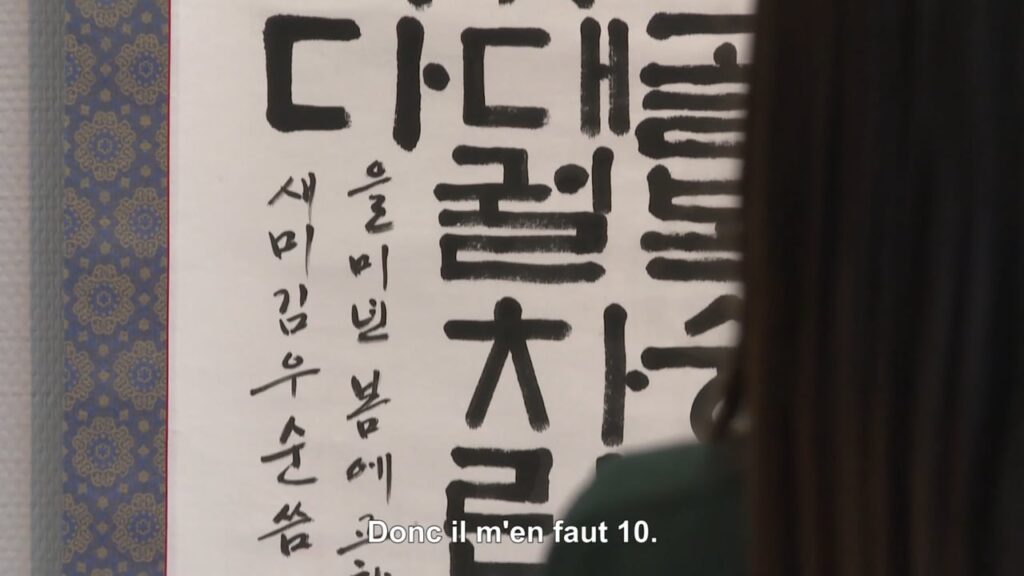 골복숭
대궐차
다
을미년 봄에
새미 김우순 씀
Donc il m'en faut 10.